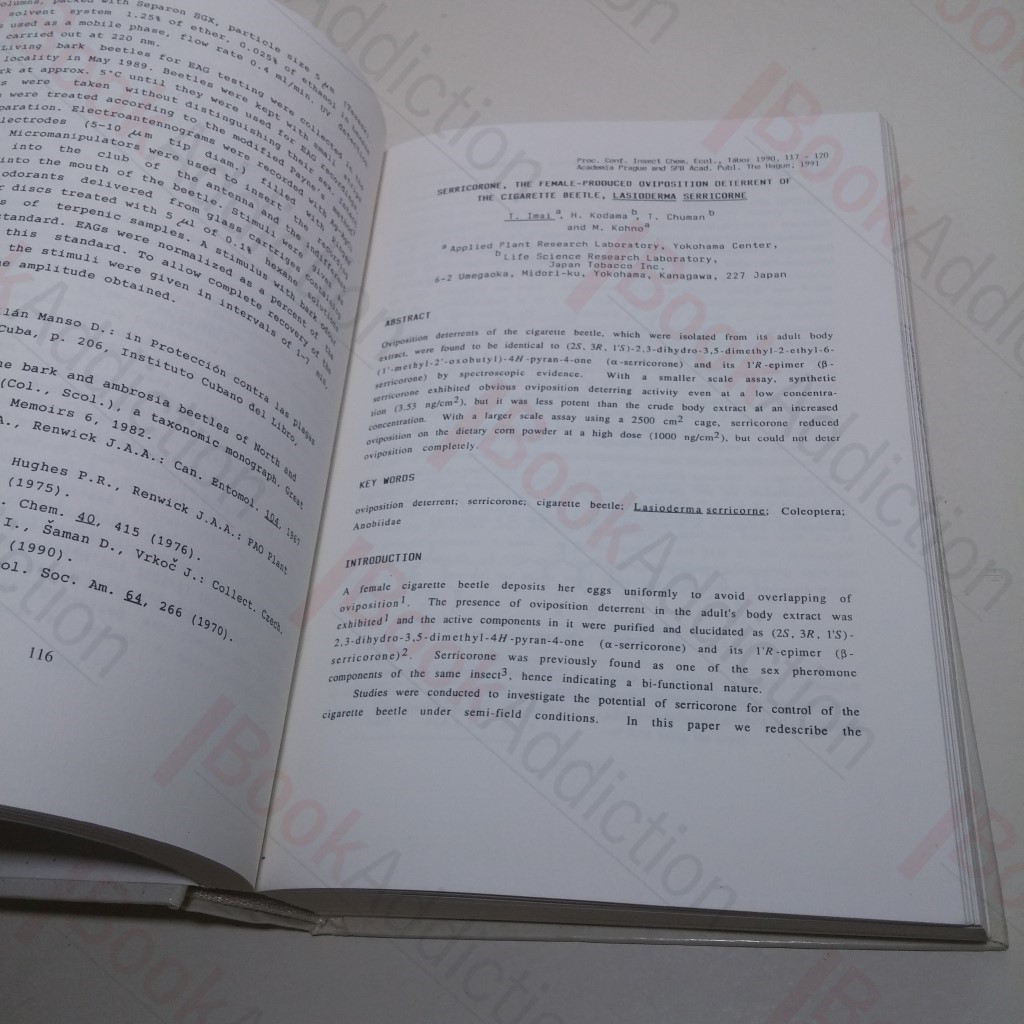 olumns, packed with Separon SGX, particle size 5 µm (Tessek,
solvent system 1.25% of ether, 0.025% of ethanol in hexane
s used as a mobile phase, flow rate 0.4 ml/min. UV detection
carried out at 220 nm.
Living bark beetles for EAG testing were collected in
locality in May 1989. Beetles were kept with small
rk at approx. 5°C until they were used for EAG
s were taken without distinguishing their
were treated according to the modified Payne's
paration. Electroantennograms were recorded with
lectrodes (5-10 µm tip diam.) filled with
Micromanipulators were used to insert the recording
into the club of the antenna and the indifferent
into the mouth of the beetle. Stimuli were given as
odorants delivered from glass cartriges containing
r discs treated with 5 µl of 0.1% hexane solutions
s of terpenic samples. A stimulus with bark odour
standard. EAGs were normalized as a percent of the
this standard. To allow complete recovery of the
the stimuli were given in intervals of 1-7 min.
e amplitude obtained.
lán Manso D.: in Protección contra las plagas
Cuba, p. 206, Instituto Cubano del Libro,
he bark and ambrosia beetles of North and
(Col., Scol.), a taxonomic monograph. Great
Memoirs 6, 1982.
A., Renwick J.A.A.: Can. Entomol. 104, 1967
Hughes P.R., Renwick J.A.A.: FAO Plant
(1975).
. Chem. 40, 415 (1976).
I., Šaman D., Vrkoč J.: Collect. Czech.
(1990).
ol. Soc. Am. 64, 266 (1970).
116
Proc. Conf. Insect Chem. Ecol., Tábor 1990, 117 - 120
Academia Prague and SPB Acad. Publ. The Hague; 1991
SERRICORONE, THE FEMALE-PRODUCED OVIPOSITION DETERRENT OF
THE CIGARETTE BEETLE, LASIODERMA SERRICORNE
T. Imai a, H. Kodama b, T. Chuman b
and M. Kohno a
a Applied Plant Research Laboratory, Yokohama Center,
b Life Science Research Laboratory,
Japan Tobacco Inc.
6-2 Umegaoka, Midori-ku, Yokohama, Kanagawa, 227 Japan
ABSTRACT
Oviposition deterrents of the cigarette beetle, which were isolated from its adult body
extract, were found to be identical to (2S, 3R, 1'S)-2,3-dihydro-3,5-dimethyl-2-ethyl-6-
(1'-methyl-2'-oxobutyl)-4H-pyran-4-one (α-serricorone) and its 1'R-epimer (β-
serricorone) by spectroscopic evidence. With a smaller scale assay, synthetic
serricorone exhibited obvious oviposition deterring activity even at a low concentra-
tion (3.53 ng/cm2), but it was less potent than the crude body extract at an increased
concentration. With a larger scale assay using a 2500 cm2 cage, serricorone reduced
oviposition on the dietary corn powder at a high dose (1000 ng/cm2), but could not deter
oviposition completely.
KEY WORDS
oviposition deterrent; serricorone; cigarette beetle; Lasioderma serricorne; Coleoptera;
Anobiidae
INTRODUCTION
A female cigarette beetle deposits her eggs uniformly to avoid overlapping of
oviposition1. The presence of oviposition deterrent in the adult's body extract was
exhibited1 and the active components in it were purified and elucidated as (2S, 3R, 1'S)-
2,3-dihydro-3,5-dimethyl-4H-pyran-4-one (α-serricorone) and its 1'R-epimer (β-
serricorone)2. Serricorone was previously found as one of the sex pheromone
components of the same insect3, hence indicating a bi-functional nature.
Studies were conducted to investigate the potential of serricorone for control of the
cigarette beetle under semi-field conditions. In this paper we redescribe the
BookAddiction